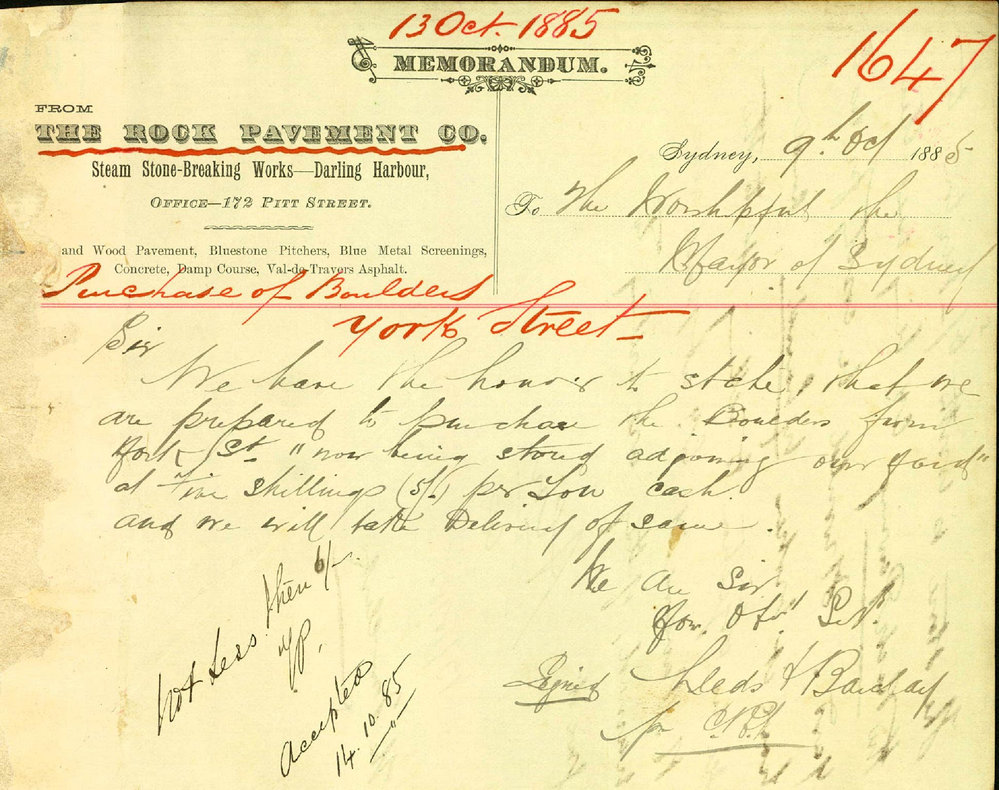 13 Oct. 1885
1647
MEMORANDUM.
FROM
THE ROCK PAVEMENT CO.
Steam Stone-Breaking Works—Darling Harbour,
OFFICE—172 PITT STREET.
and Wood Pavement, Bluestone Pitchers, Blue Metal Screenings,
Concrete, Damp Course, Val-de-Travers Asphalt.
Sydney, 9th Oct 1885
To The Worshipful the
Mayor of Sydney
Purchase of Boulders
York Street
Sir
We have the honor to state, that we
are prepared to purchase the Boulders from
York St "now being stored adjoining our yard"
at Five shillings (5/-) per Ton cash.
and we will take Delivery of same.
We are Sir
Your Obt Sert
Signed & Barclay
pr
Not Less then 6/-
Accepted
14.10.85